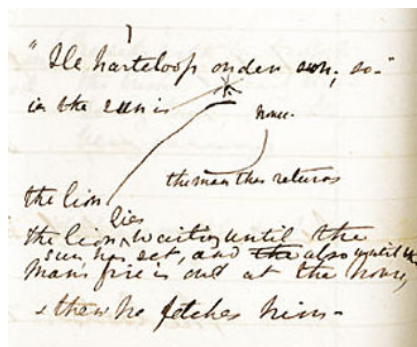 "De harteloop onder son, so-"
in the sun is
house.
the man thus returns
the lion
lies
the lion waiting until the
sun has set, and the also until the
mans fire is out at the house,
& then he fetches him-